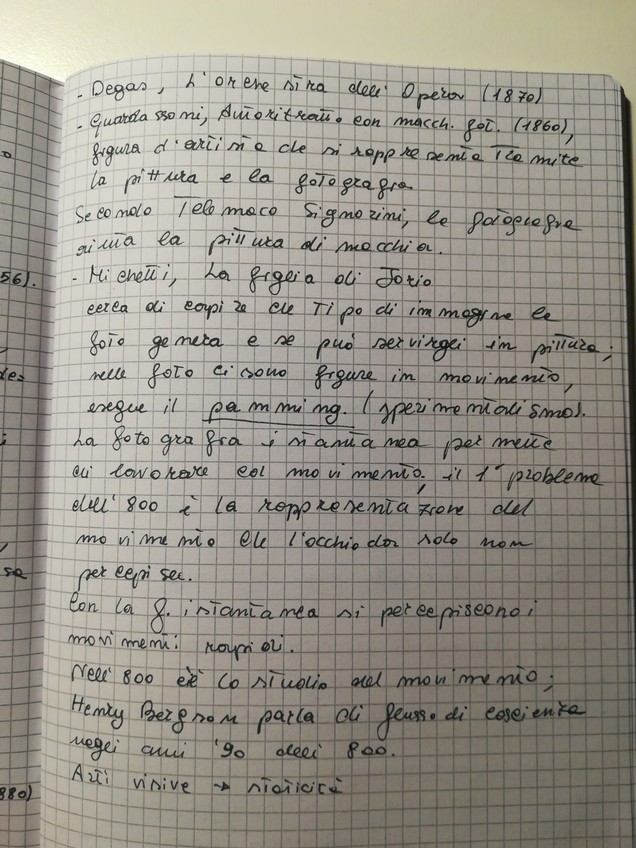 - Degas, L'orchestra dell'Opera (1870)
- Guardassoni, Autoritratto con macch. fot. (1860),
figura d'artista che si rappresenta tramite
la pittura e la fotografia
Secondo Telemaco Signorini, la fotografia
aiuta la pittura di macchia.
- Michetti, La figlia di Jorio
cerca di capire che tipo di immagine la
foto genera e se può servirgli in pittura;
nelle foto ci sono figure in movimento,
esegue il panning. (sperimentalismo).
La fotografia istantanea permette
di lavorare col movimento; il 1° problema
dell'800 è la rappresentazione del
movimento che l'occhio da solo non
percepisce.
Con la f. istantanea si percepiscono i
movimenti rapidi.
Nell'800 c'è lo studio del movimento;
Henry Bergson parla di flusso di coscienza
negli anni '90 dell'800.
Arti visive → staticità
56).
880)